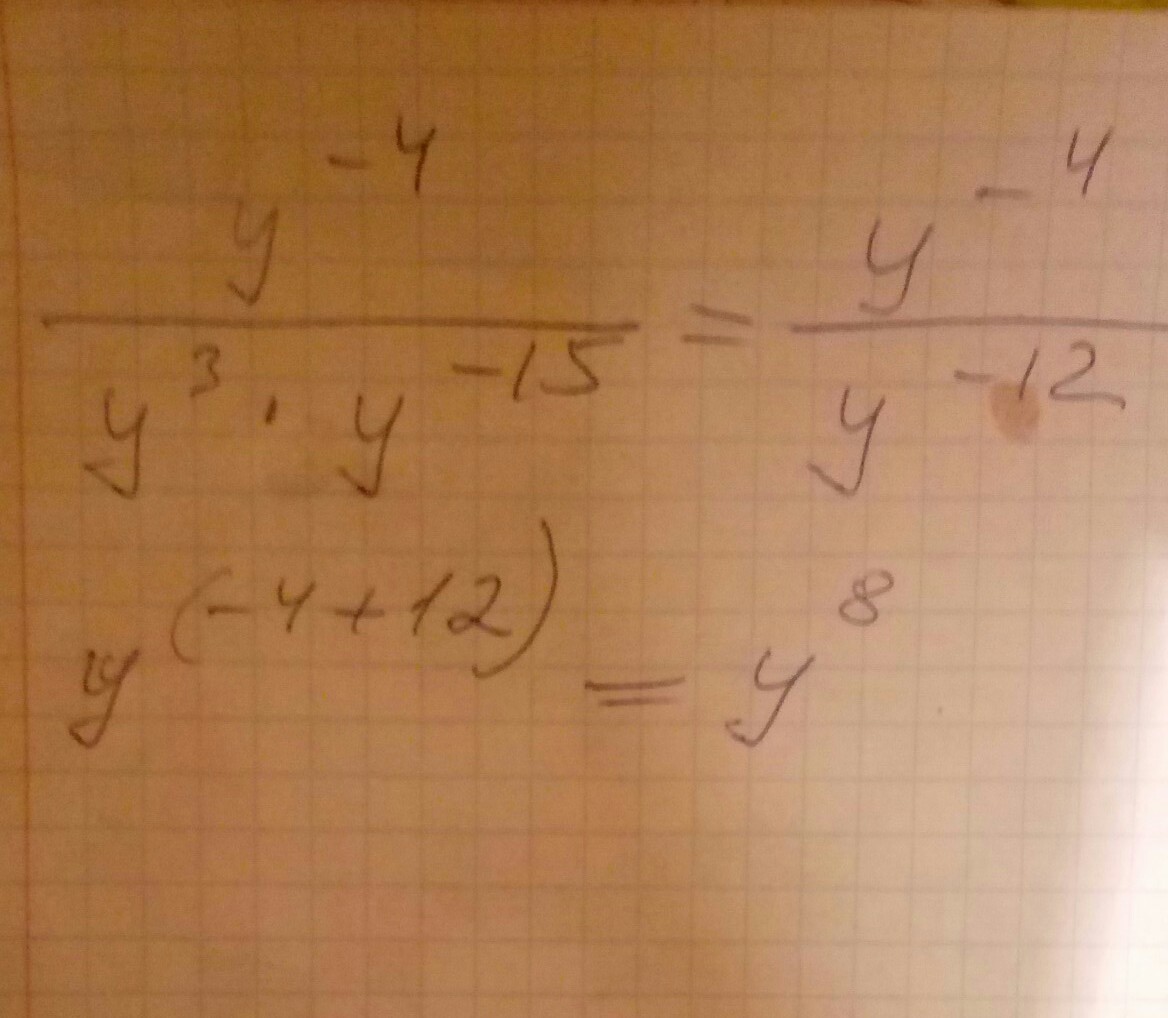 y^-4 / (y^3 · y^-15) = y^-4 / y^-12
y^(-4+12) = y^8